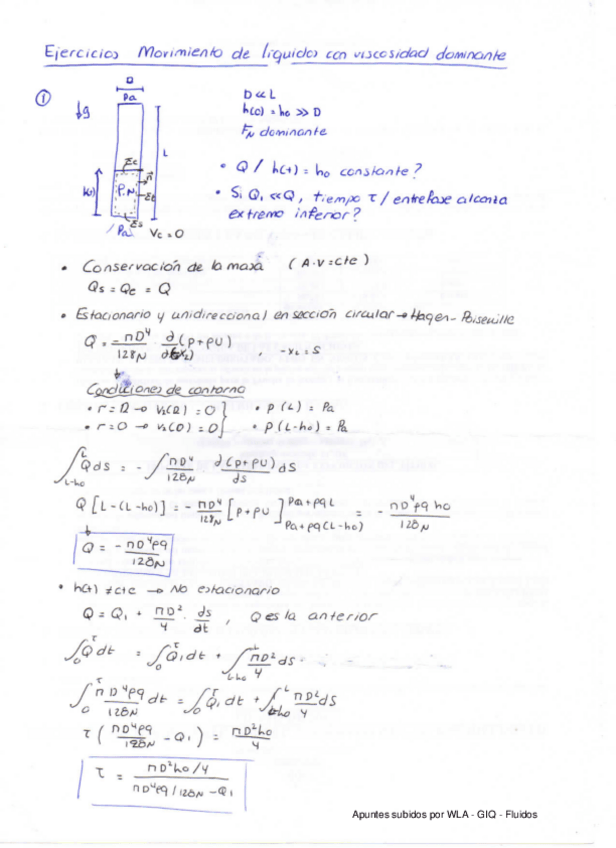 Ejercicios Movimiento de líquidos con viscosidad dominante
①
D
Pa
↓g
L
h(t)
Σc
P.M.
n
Σt
Σs
Pa
Vc = 0
D << L
h(0) = ho >> D
Fμ dominante
• Q / h(t) = ho constante?
• Si Q₁ << Q, tiempo τ / entrefase alcanza
extremo inferior?
• Conservación de la masa (A·v = cte)
Qs = Qe = Q
• Estacionario y unidireccional en sección circular → Hagen-Poiseuille
Q = -πD⁴/128μ · ∂(p+ρU)/∂(-x₂) , -x₂ = s
Condiciones de contorno
• r = R → v₂(R) = 0 } • p(L) = Pa
• r = 0 → v₂(0) = 0 } • p(L-ho) = Pa
∫_{L-ho}^{L} Q ds = -∫ πD⁴/128μ ∂(p+ρU)/ds ds
Q [L-(L-ho)] = -πD⁴/128μ [p+ρU]_{Pa+ρg(L-ho)}^{Pa+ρgL} = -πD⁴ρg ho/128μ
Q = -πD⁴ρg/128μ
• h(t) ≠ cte → No estacionario
Q = Q₁ + πD²/4 · ds/dt , Q es la anterior
∫₀^τ Q dt = ∫₀^τ Q₁ dt + ∫_{L-ho}^{L} πD²/4 ds
∫₀^τ πD⁴ρg/128μ dt = ∫₀^τ Q₁ dt + ∫_{L-ho}^{L} πD²/4 ds
τ (πD⁴ρg/128μ - Q₁) = πD²ho/4
τ = πD²ho/4 / πD⁴ρg/128μ - Q₁
Apuntes subidos por WLA - GIQ - Fluidos